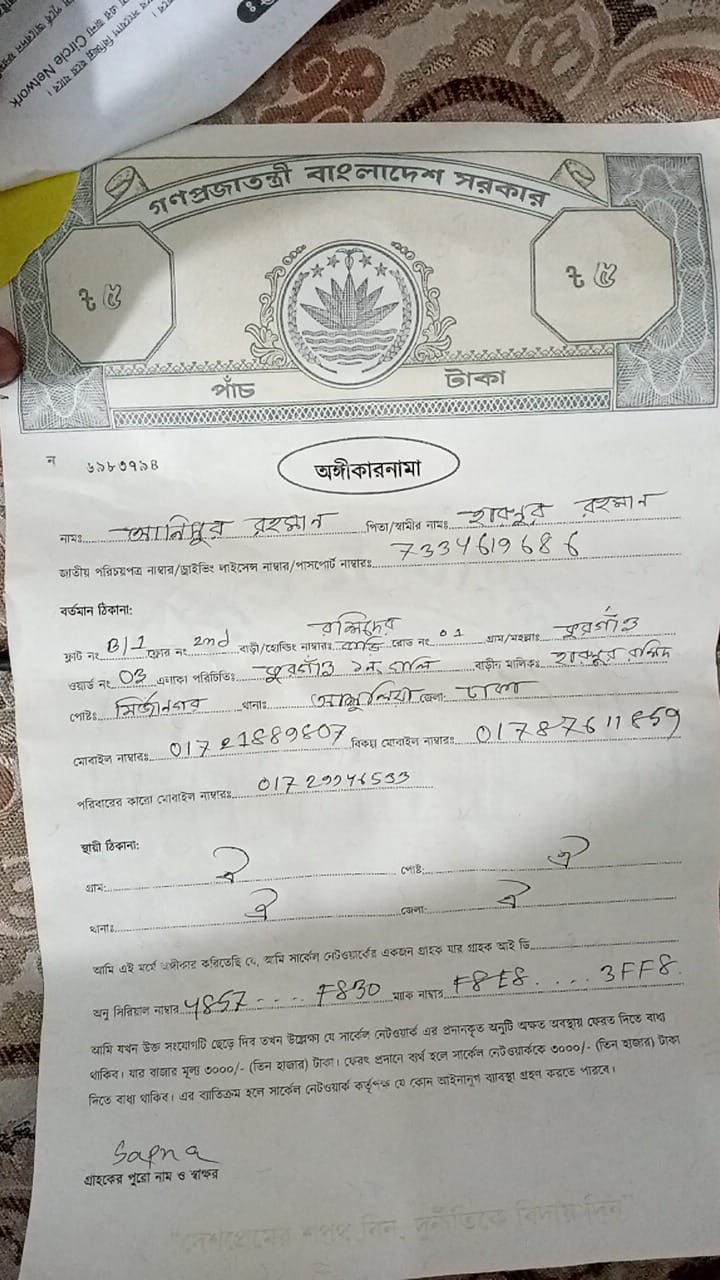 Circle Network
গণপ্রজাতন্ত্রী বাংলাদেশ সরকার
৳ ৫
৳ ৫
পাঁচ টাকা
ন ৬৯৮৩৭৯৪
অঙ্গীকারনামা
নামঃ রহমান পিতা/স্বামীর নামঃ রহমান
জাতীয় পরিচয়পত্র নাম্বার/ড্রাইভিং লাইসেন্স নাম্বার/পাসপোর্ট নাম্বারঃ 7334619686
বর্তমান ঠিকানা:
ফ্লাট নং B/1 ফ্লোর নং 2nd বাড়ী/হোল্ডিং নাম্বারঃ রশিদের বাড়ি রোড নং 01 গ্রাম/মহল্লাঃ
ওয়ার্ড নং 03 এলাকা পরিচিতিঃ ১নং গলি বাড়ীর মালিকঃ রশিদ
পোষ্টঃ মির্জানগর থানাঃ আশুলিয়া জেলা: ঢাকা
মোবাইল নাম্বারঃ 01721889807 বিকল্প মোবাইল নাম্বারঃ 01787611859
পরিবারের কারো মোবাইল নাম্বারঃ
স্থায়ী ঠিকানা:
গ্রাম: ঐ পোষ্ট: ঐ
থানাঃ ঐ জেলা: ঐ
আমি এই মর্মে অঙ্গীকার করিতেছি যে, আমি সার্কেল নেটওয়ার্কের একজন গ্রাহক যার গ্রাহক আই ডি
অনু সিরিয়াল নাম্বার 4857.... F830 ম্যাক নাম্বার F8E8.... 3FF8.
আমি যখন উক্ত সংযোগটি ছেড়ে দিব তখন উল্লেক্ষ্য যে সার্কেল নেটওয়ার্ক এর প্রদানকৃত অনুটি অক্ষত অবস্থায় ফেরত দিতে বাধ্য
থাকিব। যার বাজার মূল্য ৩০০০/- (তিন হাজার) টাকা। ফেরৎ প্রদানে ব্যর্থ হলে সার্কেল নেটওয়ার্ককে ৩০০০/- (তিন হাজার) টাকা
দিতে বাধ্য থাকিব। এর ব্যতিক্রম হলে সার্কেল নেটওয়ার্ক কর্তৃপক্ষ যে কোন আইনানুগ ব্যাবস্থা গ্রহণ করতে পারবে।
Sapna
গ্রাহকের পুরো নাম ও স্বাক্ষর
"দেশপ্রেমের শপথ নিন, দুর্নীতিকে বিদায় দিন"